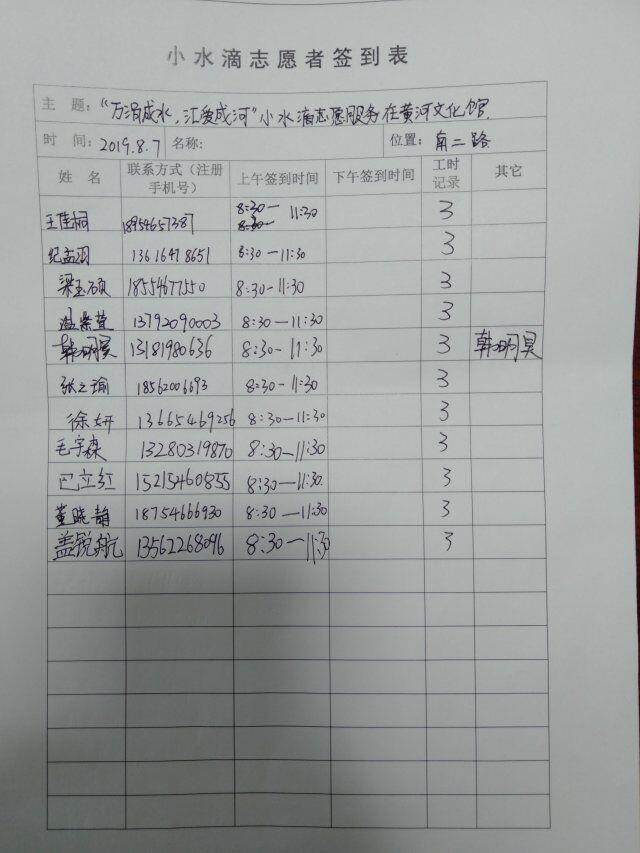 小水滴志愿者签到表
主 题: "万涓成水，汇爱成河"小水滴志愿服务在黄河文化馆.
时 间: 2019.8.7 名称: 位置: 南二路
姓 名 联系方式（注册手机号） 上午签到时间 下午签到时间 工时记录 其它
王佳桐 18954657387 8:30— 11:30 3
纪孟羽 13616478651 8:30—11:30 3
梁玉硕 18554677550 8:30-11:30 3
温紫萱 13792090003 8:30—11:30 3
韩明昊 13181980636 8:30-11:30 3 韩明昊
张之瑜 18562006693 8:30-11:30 3
徐妍 13665469256 8:30—11:30 3
毛宇森 13280319870 8:30—11:30 3
巴立红 15215460555 8:30—11:30 3
董晓静 18754666930 8:30—11:30 3
盖锐航 13562268096 8:30—11:30 3